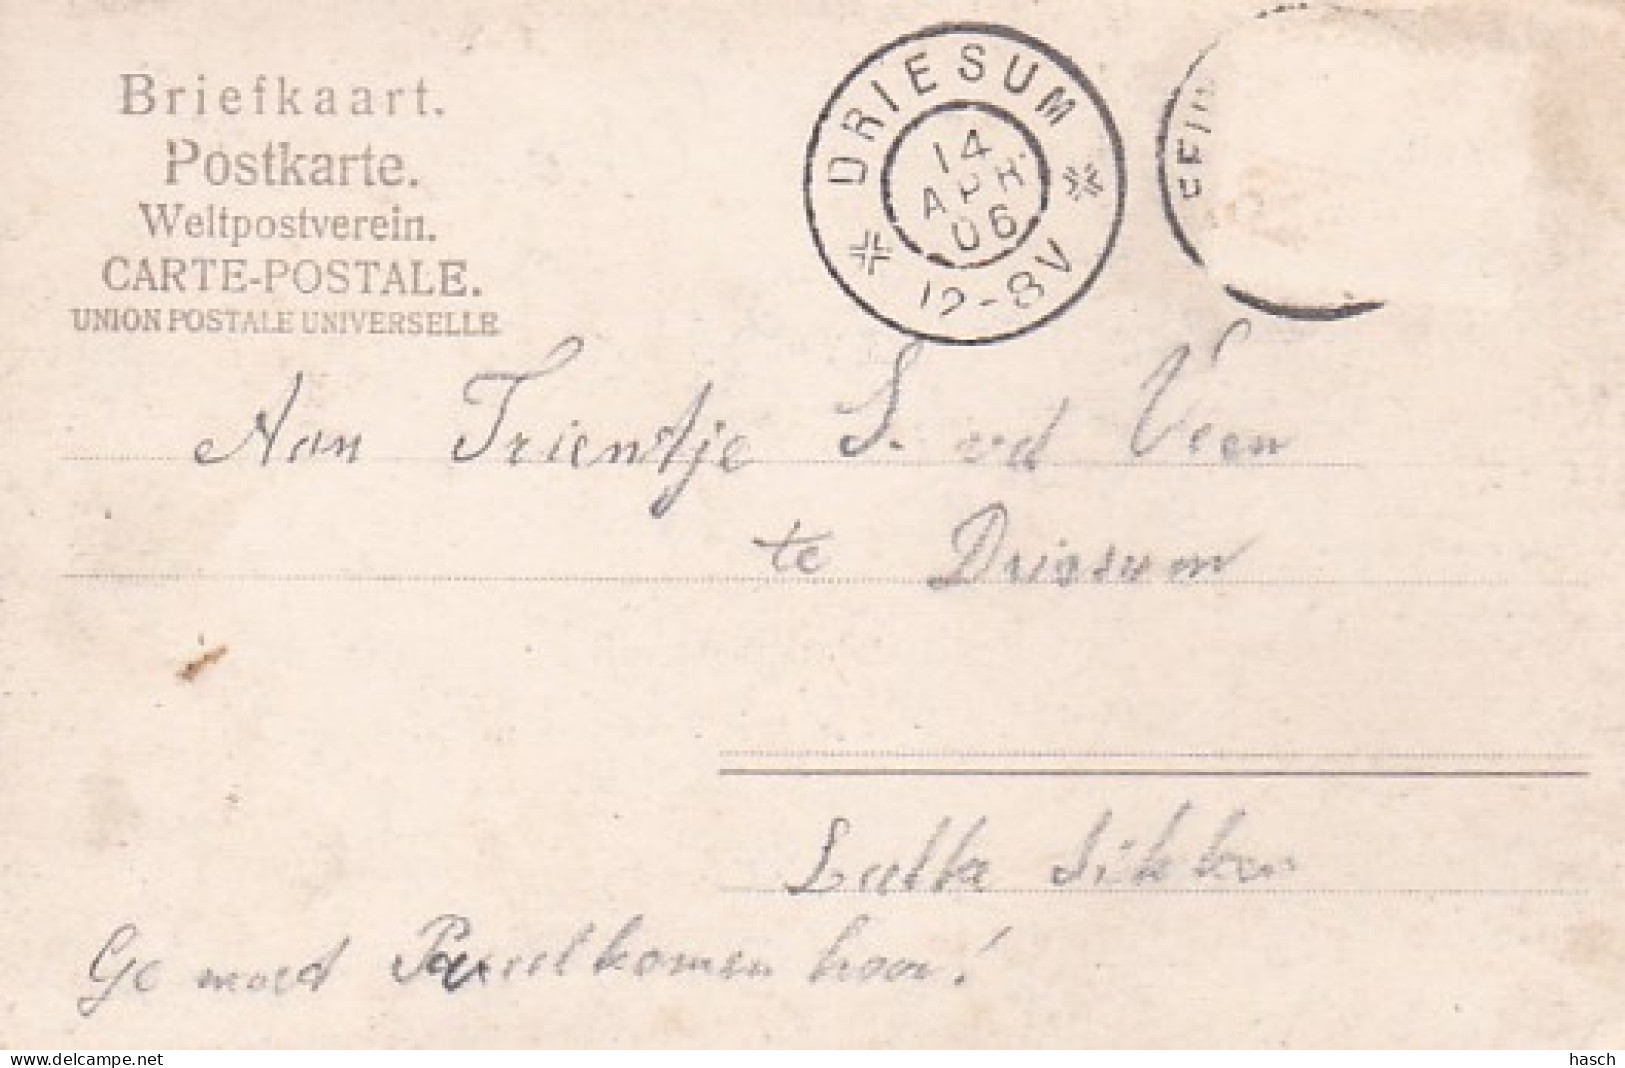 Briefkaart.
Postkarte.
Weltpostverein.
CARTE-POSTALE.
UNION POSTALE UNIVERSELLE
DRIESUM
14
APR
06
12-8V
Aan Trientje S. vd Veen
te Driesum
Sikken
Ge moed komen hoor!
delcampe.net
hasch